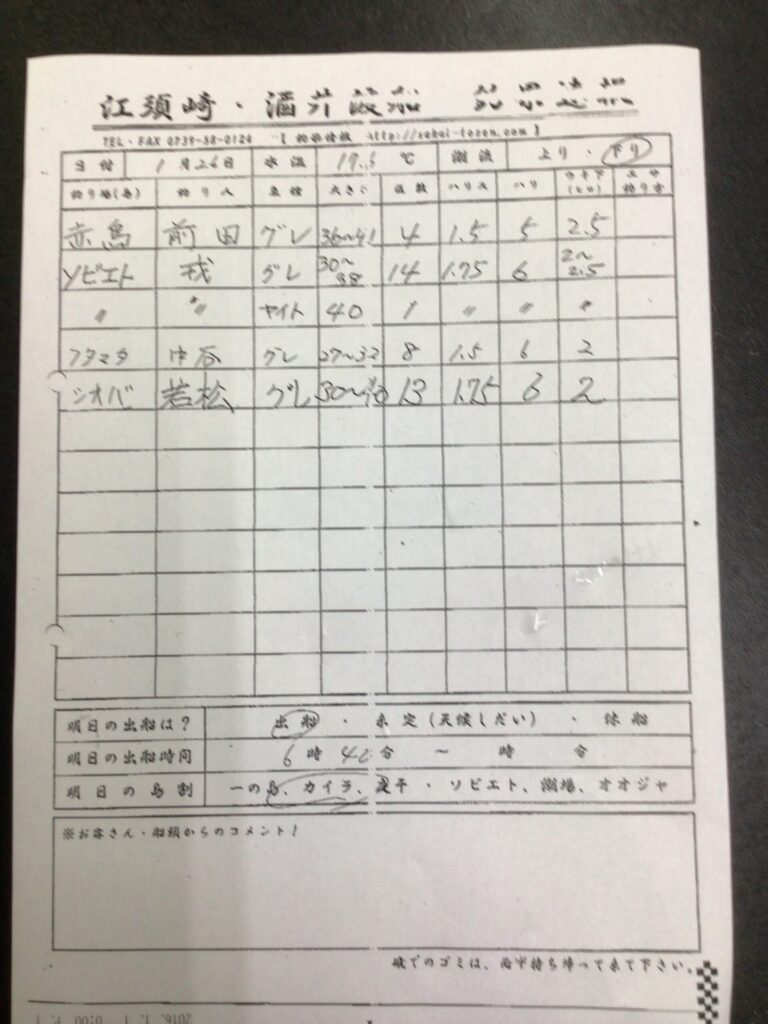 江須崎・酒井渡船 釣果速報
TEL・FAX 0739-58-0124 【 釣果情報 http://sakai-tosen.com 】
日付 1月26日 水温 17. ℃ 潮流 上り・下り
釣り場(島) 釣り人 魚種 大きさ 匹数 ハリス ハリ ウキ下(ヒロ) エサ釣り方
赤島 前田 グレ 36〜41 4 1.5 5 2.5
ソビエト 戎 グレ 30〜38 14 1.75 6 2〜2.5
〃 〃 ヤイト 40 1 〃 〃 〃
フタマタ グレ 27〜32 8 1.5 6 2
シオバ 若松 グレ 30〜40 13 1.75 6 2
明日の出船は? 出船・未定(天候しだい)・休船
明日の出船時間 6時40分 〜 時 分
明日の島割 一の島、カイラ、平・ソビエト、潮場、オオジャ
※お客さん・船頭からのコメント!
磯でのゴミは、必ず持ち帰って来て下さい。
2016. 1. 1 0:00 P. 1